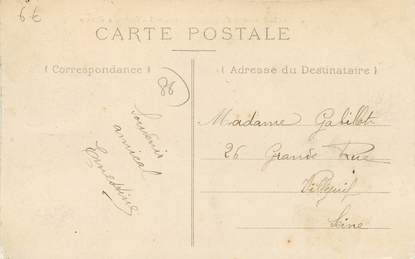 6€
CARTE POSTALE
( Correspondance )
( Adresse du Destinataire )
86
Souvenir
amical
Ernestine
Madame Gabillot
26 Grande Rue
Villejuif
Seine